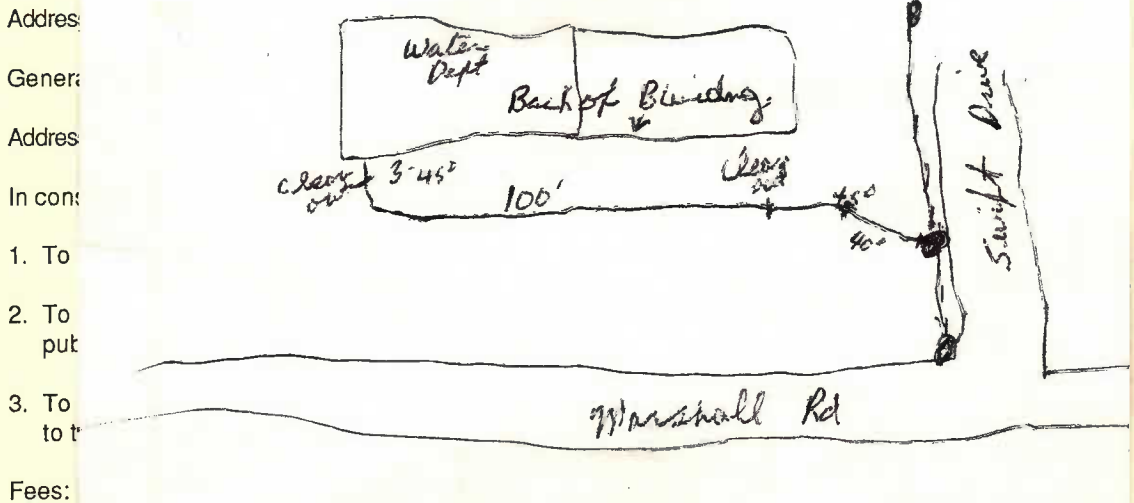 Addres
Genera
Addres
In cons
1. To
2. To
pub
3. To
to t
Fees:
Water
Dept
Back of Buiding
clean
out
3-45°
100'
Clean
out
45°
40'
Swift Drive
Marshall Rd